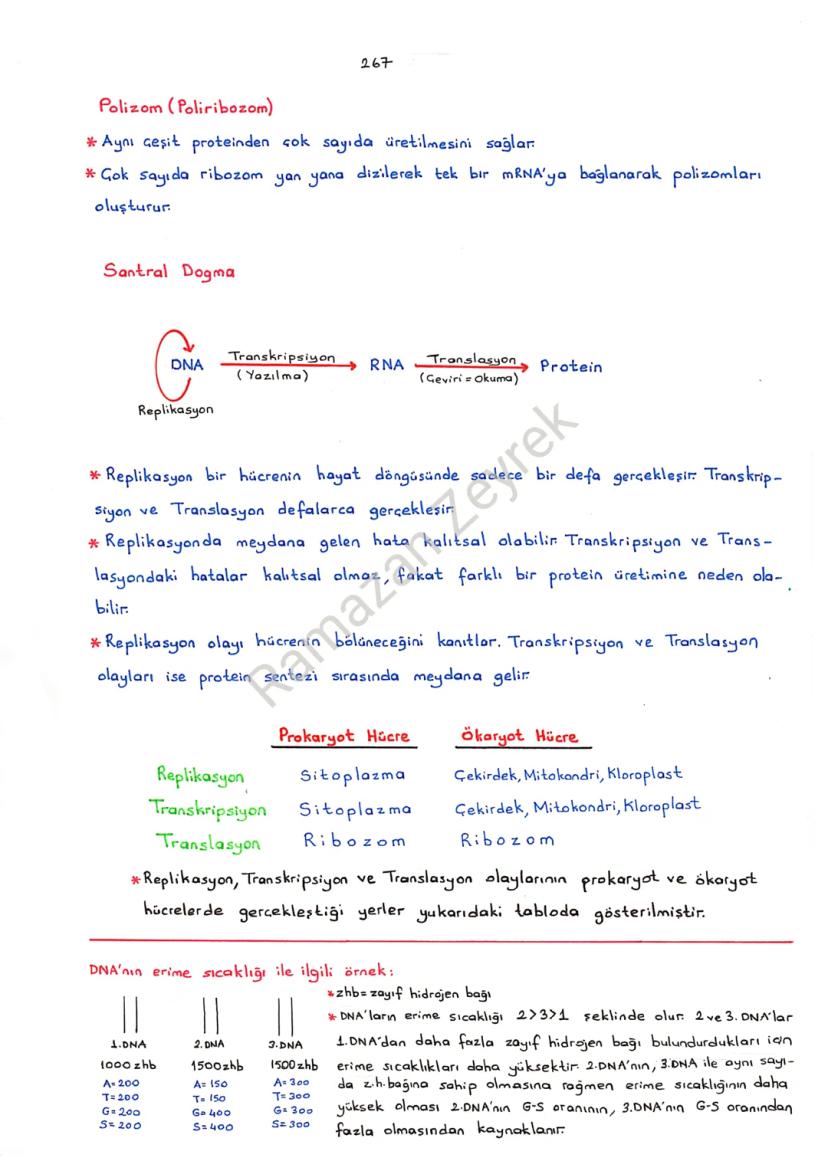 267
Polizom (Poliribozom)
* Aynı çeşit proteinden çok sayıda üretilmesini sağlar.
* Çok sayıda ribozom yan yana dizilerek tek bir mRNA'ya bağlanarak polizomları
oluşturur.
Santral Dogma
DNA Transkripsiyon RNA Translasyon Protein
(Yazılma) (Çeviri = Okuma)
Replikasyon
* Replikasyon bir hücrenin hayat döngüsünde sadece bir defa gerçekleşir. Transkrip-
siyon ve Translasyon defalarca gerçekleşir.
* Replikasyonda meydana gelen hata kalıtsal olabilir. Transkripsiyon ve Trans-
lasyondaki hatalar kalıtsal olmaz, fakat farklı bir protein üretimine neden ola-
bilir.
* Replikasyon olayı hücrenin bölüneceğini kanıtlar. Transkripsiyon ve Translasyon
olayları ise protein sentezi sırasında meydana gelir.
Ramazan Zeyrek
Prokaryot Hücre Ökaryot Hücre
Replikasyon Sitoplazma Çekirdek, Mitokondri, Kloroplast
Transkripsiyon Sitoplazma Çekirdek, Mitokondri, Kloroplast
Translasyon Ribozom Ribozom
* Replikasyon, Transkripsiyon ve Translasyon olaylarının prokaryot ve ökaryot
hücrelerde gerçekleştiği yerler yukarıdaki tabloda gösterilmiştir.
DNA'nın erime sıcaklığı ile ilgili örnek:
1.DNA 2.DNA 3.DNA
1000 zhb 1500zhb 1500 zhb
A=200 A=150 A=300
T=200 T=150 T=300
G=200 G=400 G=300
S=200 S=400 S=300
* zhb= zayıf hidrojen bağı
* DNA'ların erime sıcaklığı 2>3>1 şeklinde olur. 2 ve 3. DNA'lar
1.DNA'dan daha fazla zayıf hidrojen bağı bulundurdukları için
erime sıcaklıkları daha yüksektir. 2.DNA'nın, 3.DNA ile aynı sayı-
da z.h.bağına sahip olmasına rağmen erime sıcaklığının daha
yüksek olması 2.DNA'nın G-S oranının, 3.DNA'nın G-S oranından
fazla olmasından kaynaklanır.